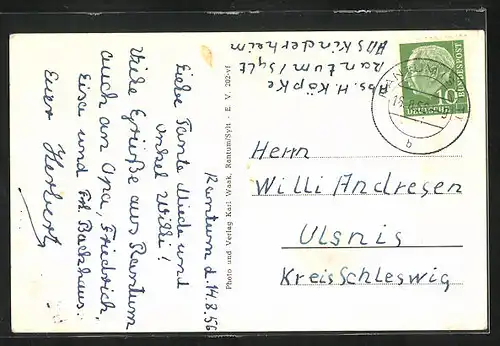 Rantum d. 14.8.56
Liebe Tante Miede und
onkel Willi!
Viele Grüße aus Rantum
auch an Opa, Friedrich,
Elsa und Frl. Backhaus.
Euer Herbert
Photo und Verlag Karl Waak, Rantum/Sylt - E. V. 202-vf
Abs. H. Köpke
Rantum/Sylt
ADS Kinderheim
DEUTSCHE
BUNDESPOST
10
b
Herrn
Willi Andresen
Ulsnis
Kreis Schleswig